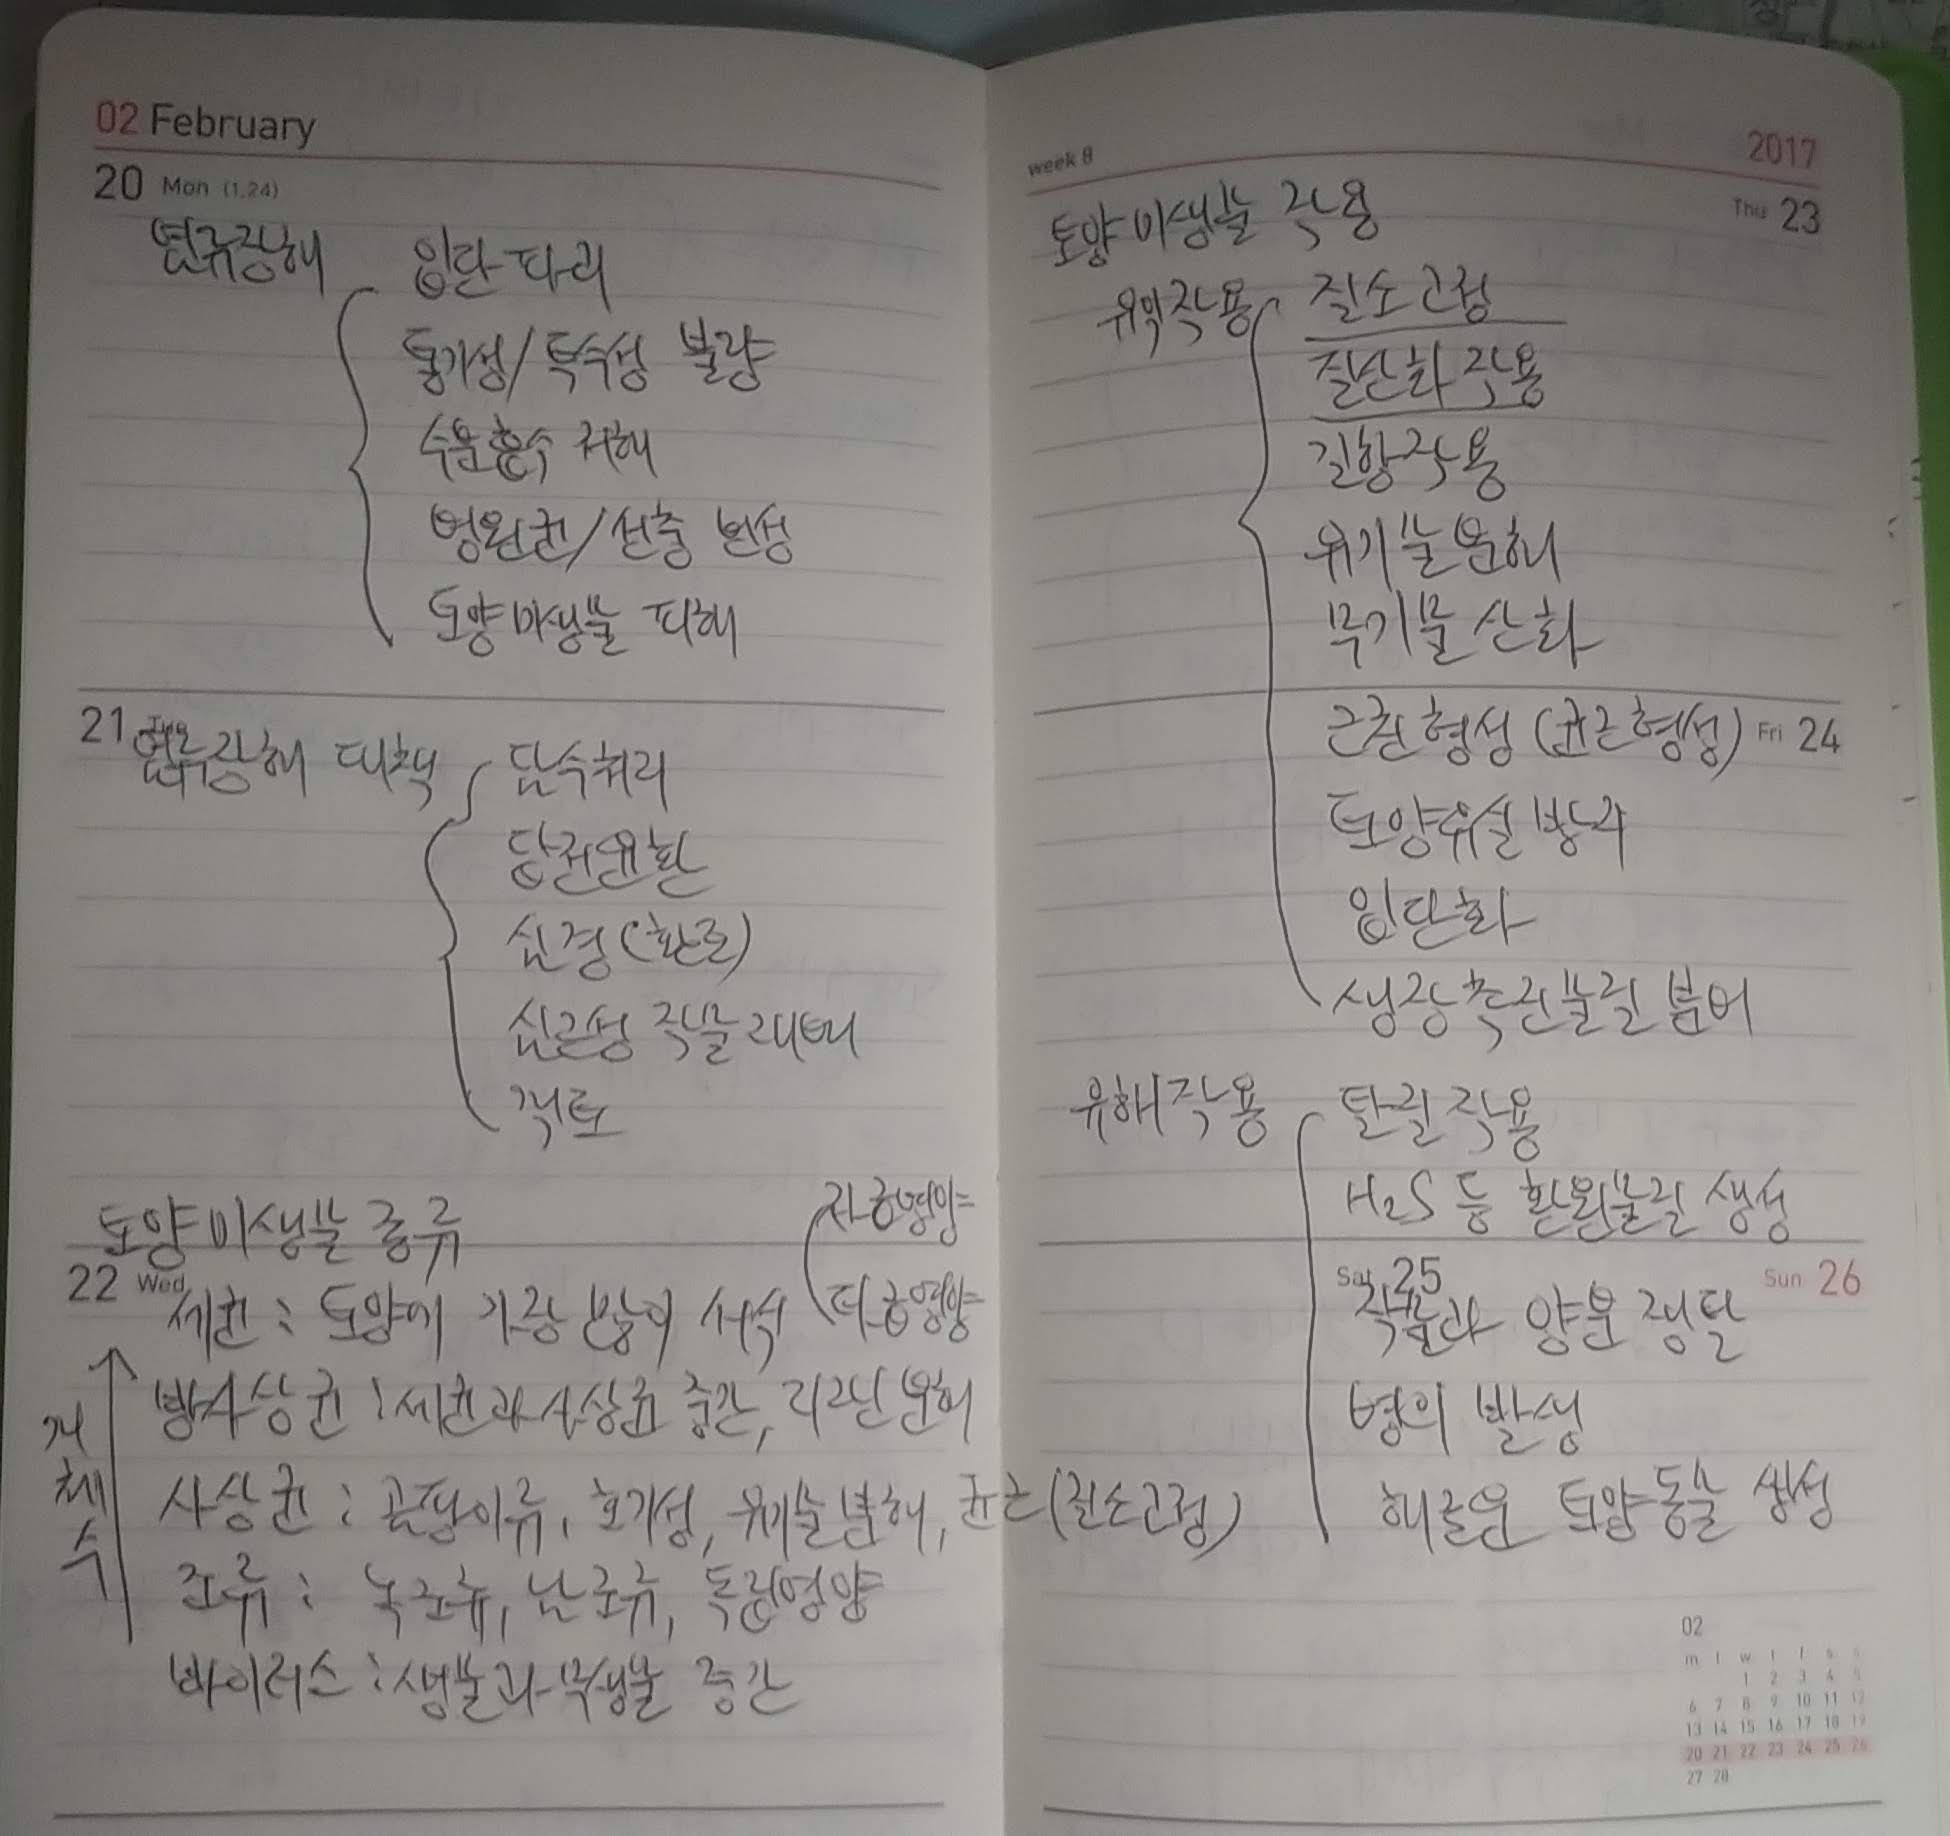 02 February
20 Mon (1.24)
염류장해 입단파괴
통기성/투수성 불량
수분흡수 저해
병원균/선충 번성
토양미생물 피해
21
염류장해 대책 담수처리
답전윤환
심경(환토)
심근성 작물재배
객토
토양미생물 종류
22 Wed
세균: 토양에 가장 많이 서식 자급영양
타급영양
방사상균: 세균과 사상균 중간, 리그닌 분해
사상균: 곰팡이류, 호기성, 유기물분해, 균근(질소고정)
조류: 녹조류, 남조류, 독립영양
바이러스: 생물과 무생물 중간
개체수
week 8 2017
Thu 23
토양미생물 작용
유익작용 질소고정
질산화작용
길항작용
유기물분해
무기물산화
근권형성(균근형성) Fri 24
토양유실 방지
입단화
생장촉진물질 분비
유해작용 탈질작용
H2S 등 환원물질 생성
Sat 25 Sun 26
작물과 양분 쟁탈
병의 발생
해로운 토양동물 생성
02
m t w t f s s
1 2 3 4 5
6 7 8 9 10 11 12
13 14 15 16 17 18 19
20 21 22 23 24 25 26
27 28